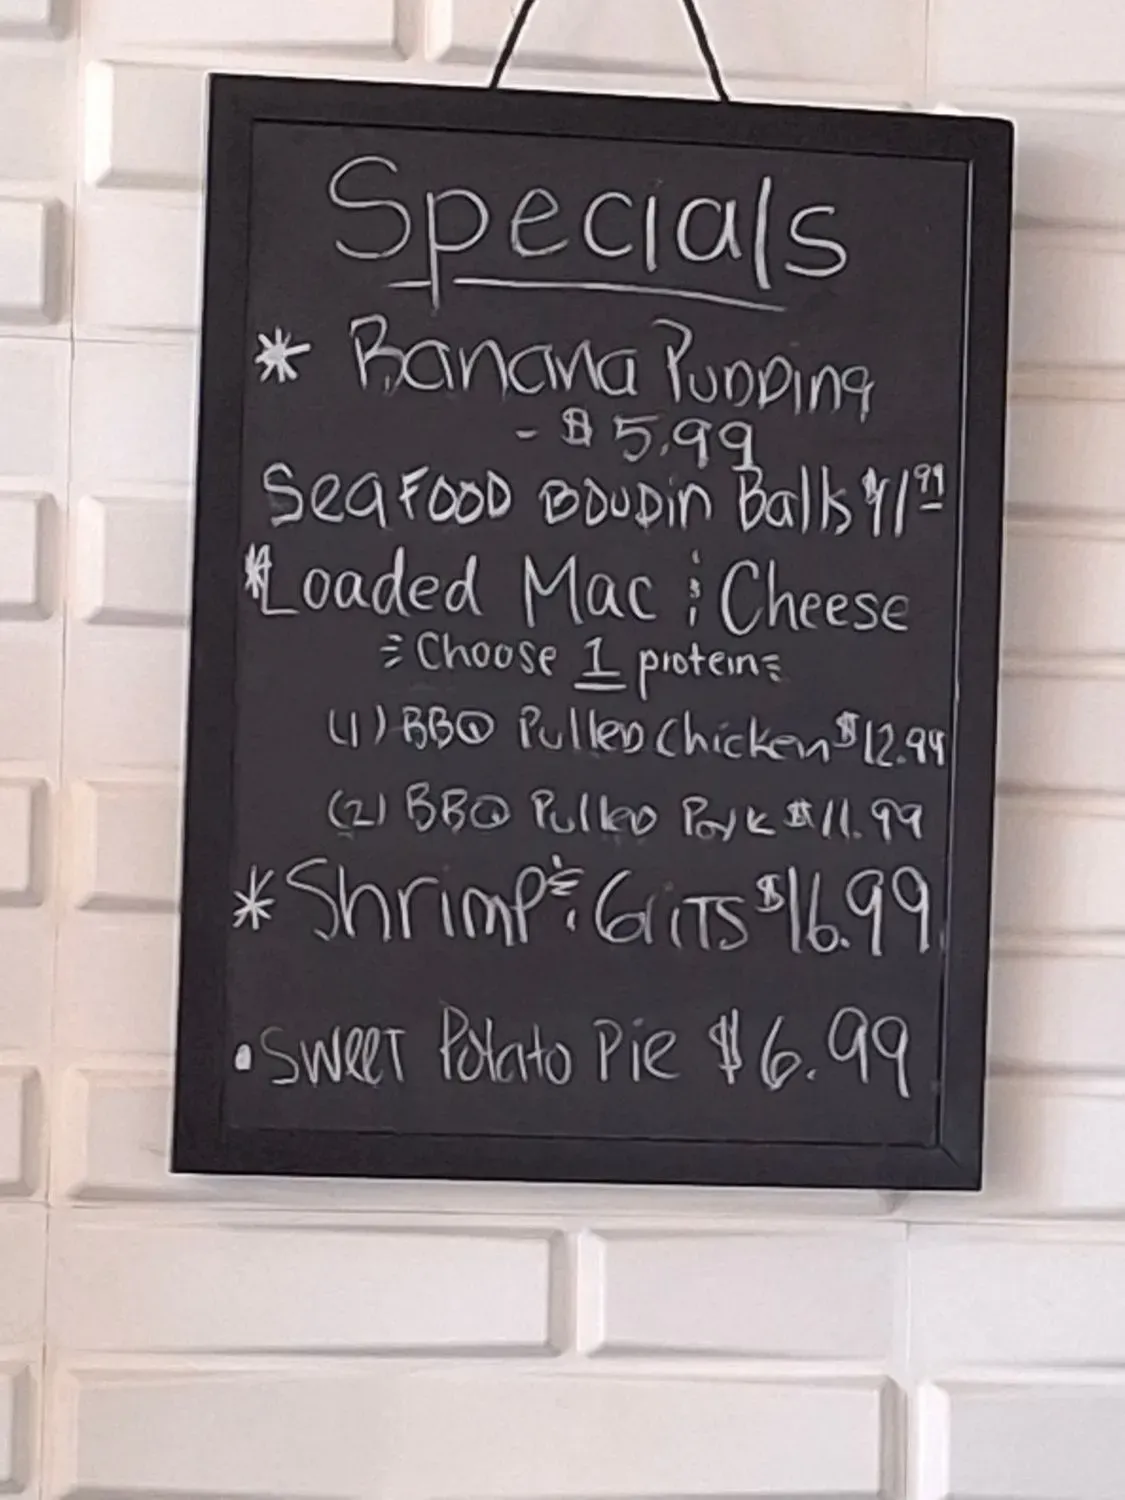 Specials
* Banana Pudding
- $5.99
Seafood Boudin Balls
*Loaded Mac & Cheese
Choose 1 protein
(1) BBQ Pulled Chicken $12.99
(2) BBQ Pulled Pork $11.99
* Shrimp & Grits $16.99
• Sweet Potato Pie $6.99